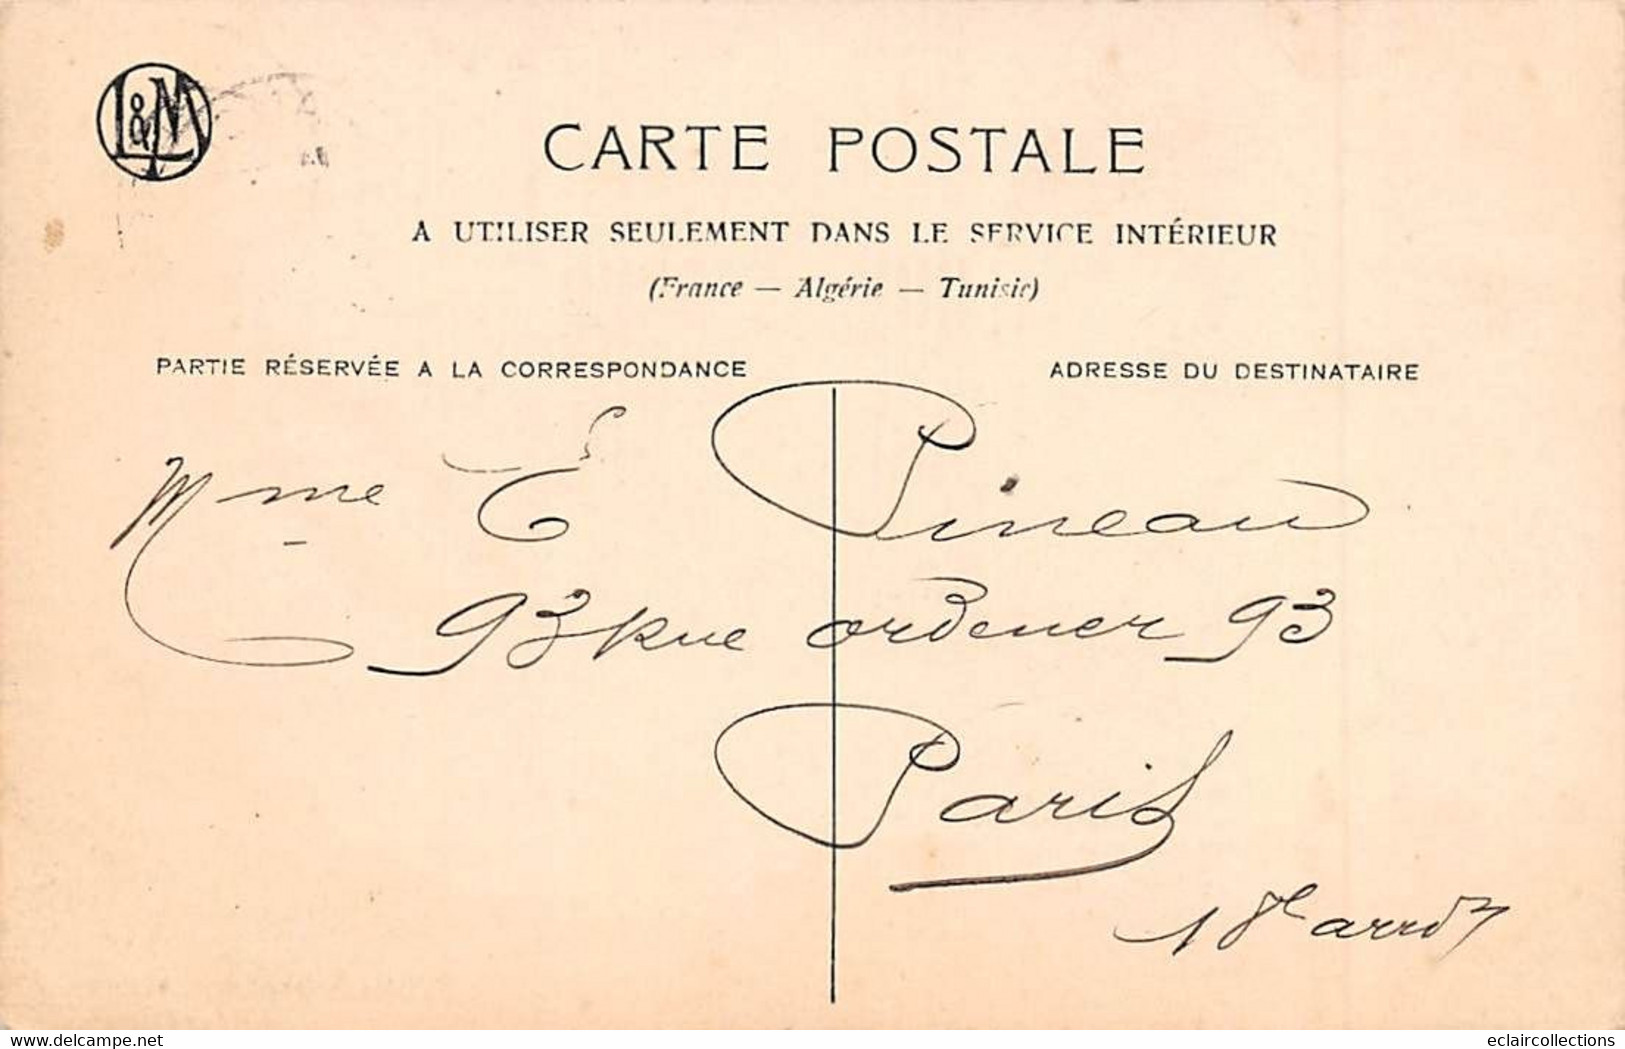 L&M
CARTE POSTALE
A UTILISER SEULEMENT DANS LE SERVICE INTÉRIEUR
(France — Algérie — Tunisie)
PARTIE RÉSERVÉE A LA CORRESPONDANCE
ADRESSE DU DESTINATAIRE
Mme E Pineau
93 Rue ordener 93
Paris
18e arrdt
delcampe.net
eclaircollections